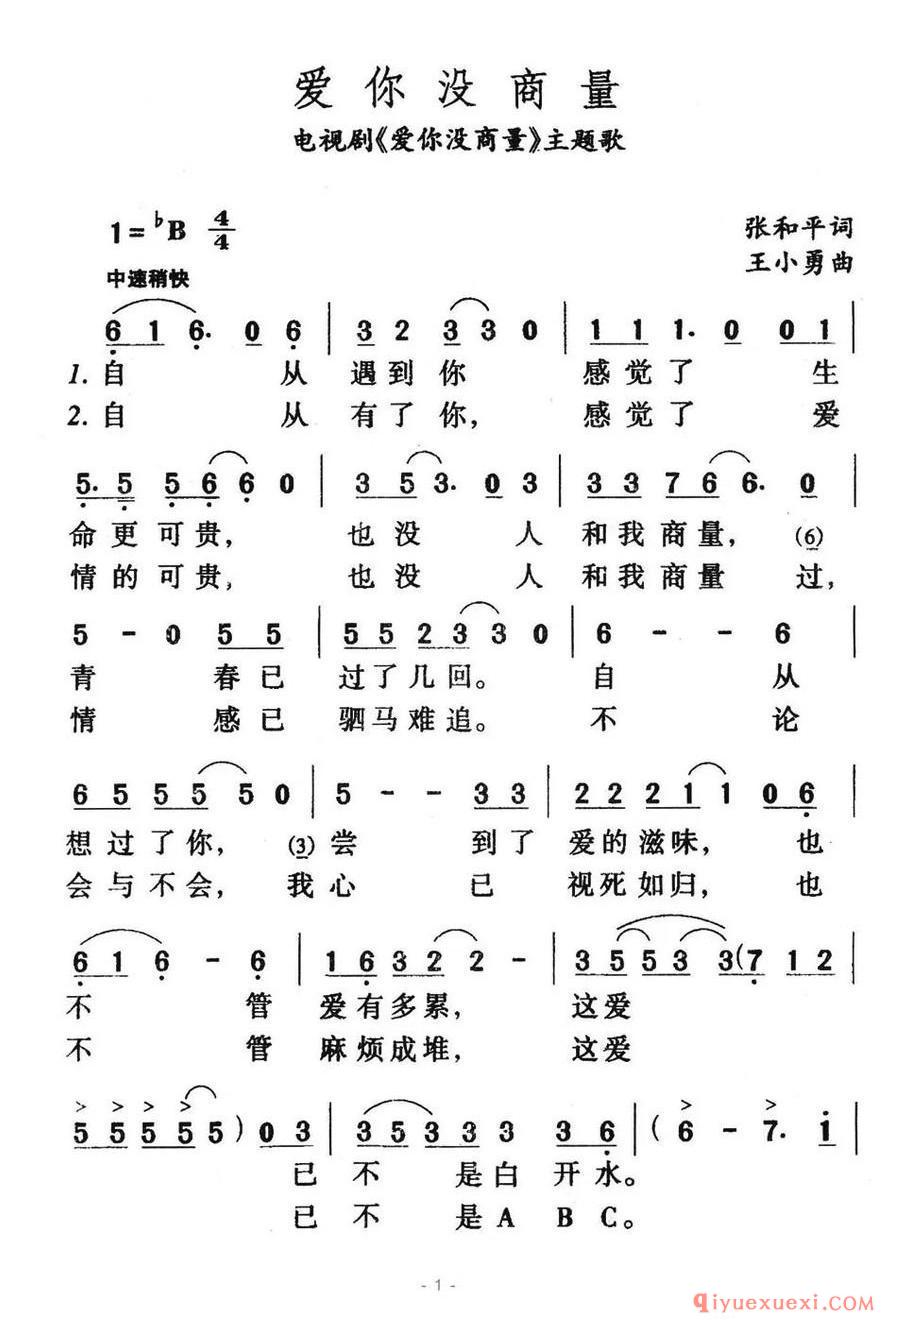 爱你没商量
电视剧《爱你没商量》主题歌
1=♭B 4/4
张和平词
中速稍快
王小勇曲
6 1 6· 0 6 | 3 2 3 3 0 | 1 1 1· 0 0 1 |
1. 自 从 遇到你 感觉了 生
2. 自 从 有了你, 感觉了 爱
5· 5 5 6 6 0 | 3 5 3· 0 3 | 3 3 7 6 6· 0 |
命更可贵, 也没 人 和我商量, (6)
情的可贵, 也没 人 和我商量 过,
5 - 0 5 5 | 5 5 2 3 3 0 | 6 - - 6 |
青 春已 过了几回。 自 从
情 感已 驷马难追。 不 论
6 5 5 5 5 0 | 5 - - 3 3 | 2 2 2 1 1 0 6 |
想过了你, (3) 尝 到了 爱的滋味, 也
会与不会, 我心 已 视死如归, 也
6 1 6 - 6 | 1 6 3 2 2 - | 3 5 5 3 3 (7 1 2
不 管 爱有多累, 这爱
不 管 麻烦成堆, 这爱
> > > >
5 5 5 5 5) 0 3 | 3 5 3 3 3 3 6 | (6 - 7· 1 |
已 不 是白 开水。
已 不 是A B C。
- 1 -
qiyuexuexi.com